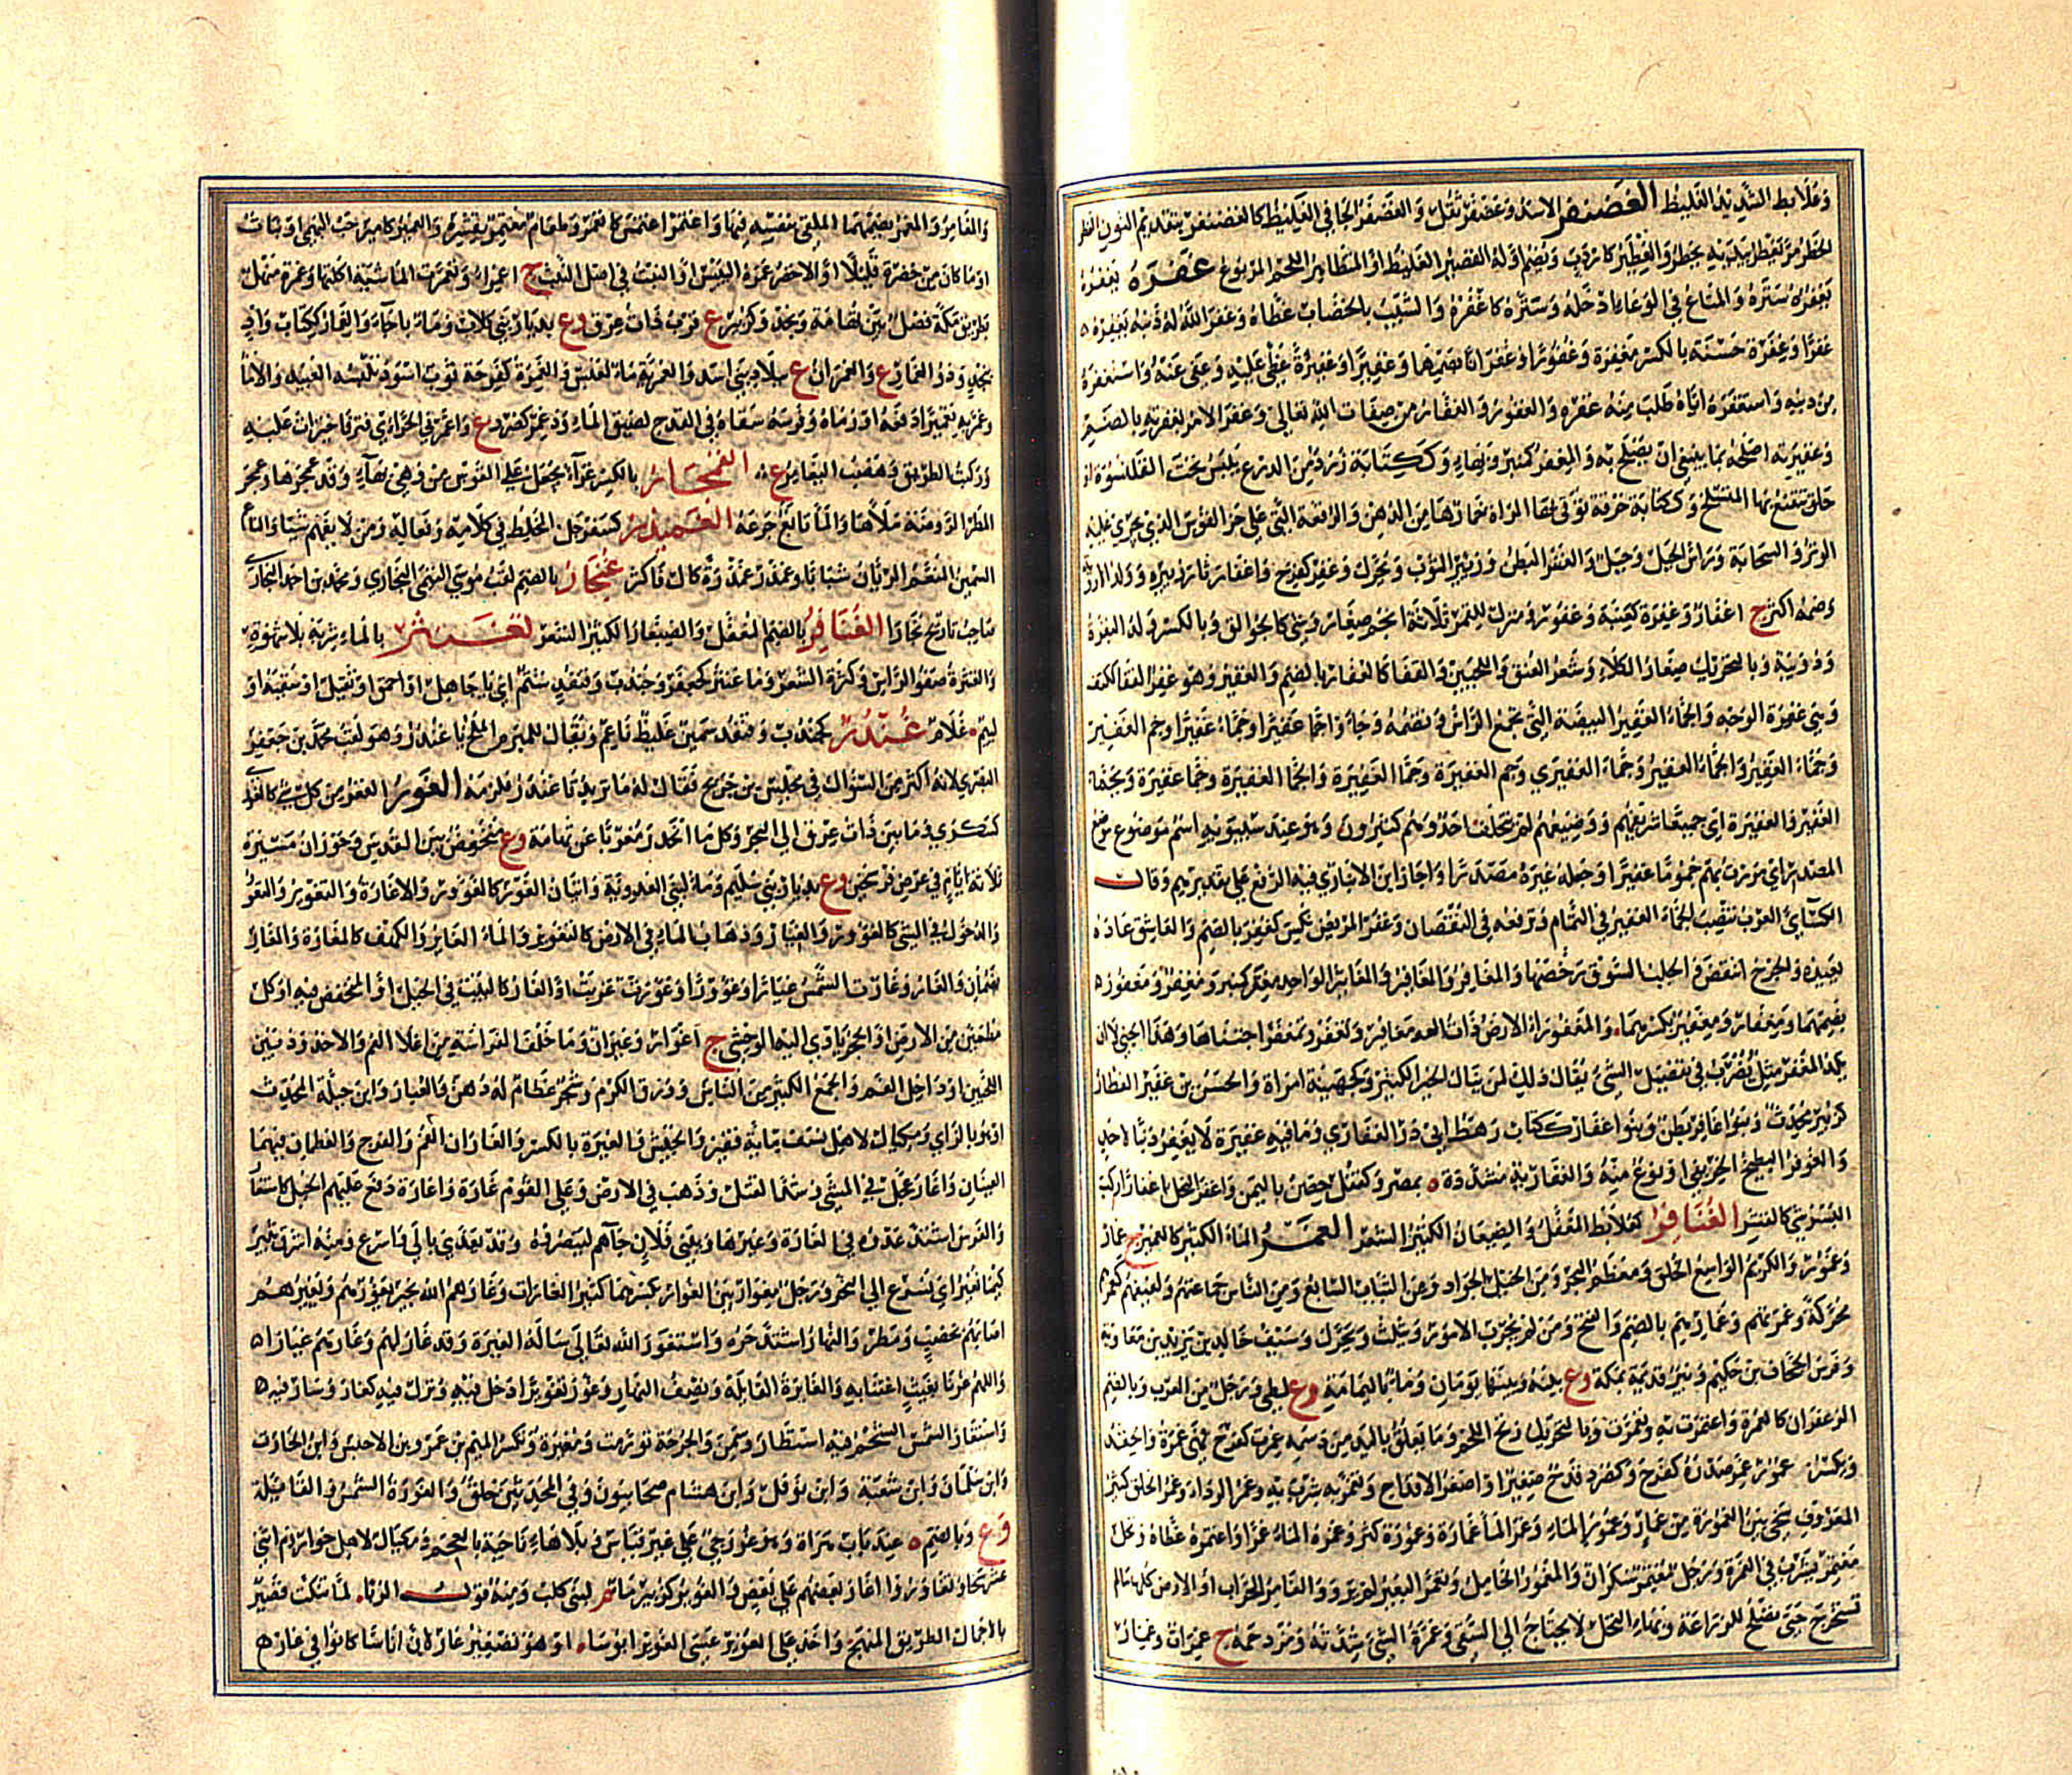 وعلابط الشديد الغليظ الغضنفر الاسد وغضفر ثقل والغضفر الجافي الغليظ كالغضنفر بتقديم النون الغطر
الخطر مر يغطر بيديه يخطر والغطير كاردب ويضم اوله القصير الغليظ او المتظاهر اللحم المربوع غفره يغفره
يغفره ستره والمتاع في الوعاء ادخله وستره كاغفره والشيب بالخضاب غطاه وغفر الله له ذنبه يغفره
غفرا وغفرة حسنة بالكسر ومغفرة وغفورا وغفرانا بضمهما وغفيرا وغفيرة غطى عليه وعفى عنه واستغفره
من ذنبه واستغفره اياه طلب منه غفره والغفور والغفار من صفات الله تعالى وغفر الامر بغفرته بالضم
وغفيرته اصلحه بما ينبغي ان يصلح به والمغفر كمنبر وبهاء وككتابة زرد من الدرع يلبس تحت القلنسوة او
حلق يتقنع بها المتسلح وككتابة خرقة توقي بها المراة خمارها من الدهن والرقعة التي على حز القوس الذي يجري عليه
الوتر والسحابة وراس الجبل وجبل والغفر البطن وزئبر الثوب ويحرك وغفر كفرح واغفار ثار زئبره وولد الاروية
وضمه اكثر ج اغفار وغفرة كعنبة وغفور ومنزل للقمر ثلاثة انجم صغار وشي كالجوالق وبالكسر ولد البقرة
ودويبة وبالتحريك صغار الكلاء وشعر العنق واللحيين والقفا كالغفار بالضم والغفير وهو غفر القفا ككتف
وهي غفرة الوجه والجماء الغفير البيضة التي تجمع الراس وتضمه وجاؤا جما غفيرا وجماء غفيرا وجم الغفير
وجماء الغفير والجماء الغفير وجماء الغفيري وجم الغفيرة وجما الغفيرة والجما الغفيرة وجما غفيرة وبجماء
الغفير والغفيرة اي جميعا شريفهم ووضيعهم لم يتخلف احد وهم كثيرون وهو عند سيبويه اسم موضوع موضع
المصدر اي مررت بهم جموما غفيرا وجعله غيره مصدرا واجاز ابن الانباري فيه الرفع على تقديرهم وقال
الكسائي العرب تنصب الجماء الغفير في التمام وترفعه في النقصان وغفر المريض نكس كغفر بالضم والعاشق عاده
عيده والجرح انتقض والجلب السوق رخصها والمغافر والمغاثير الواحد مغفر كمنبر ومغفر ومغفور
بضمهما ومغفار ومغفير بكسرهما والمغفوراء الارض ذات المغافير وتغفر وتمغفر اجتناها وهذا الجنى لا ان
يكد المغفر مثل يضرب في تفضيل الشي يقال ذلك لمن ينال الخير الكثير وكجهينة امراة والحسن بن غفير العطار
كزبير محدث وبنو غافر بطن وبنو غفار ككتاب رهط ابي ذر الغفاري وما فيه غفيرة لا يغفر ذنبا لاحد
والغوفر البطيخ الخريفي او نوع منه والغفارية مشددة بمصر وكقفل حصن باليمن واغفر النخل ركب
البسر شي كالقشر الغفافر كعلابط المغفل والضبعان الكثير الشعر الغمر الماء الكثير كالغمير ج غمار
وغمور والكريم الواسع الخلق ومعظم البحر ومن الخيل الجواد ومن الثياب السابغ ومن الناس جماعتهم ولفيفهم كغمر
محركة وغمرتهم وغمارهم بالضم والفتح ومن لم يجرب الامور ويثلث ويحرك وسيف خالد بن يزيد بن معاوية
وفرس الجحاف بن حكيم وبئر قديمة بمكة وع بينه وبينها يومان وماء باليمامة وع لطي ورجل من العرب وبالضم
الزعفران كالغمرة واغتمرت به وتغمرت وبالتحريك زنخ اللحم وما يعلق باليد من دسمه غمرت كفرح فهي غمرة والحقد
ويكسر غمور غمر صدره كفرح وكصرد قدح صغير او اصغر الاقداح وتغمر به شرب به وغمر الرداء وغمر الخلق كثير
المعروف سخي بين الغمورة من غمار وغمور الماء وغمر الماء غمارة وغمورة كثر وغمره الماء غمرا واغتمره غطاه ونخل
مغتمر يشرب في الغمرة ورجل مغتمر سكران والمغمور الخامل وتغمر البعير لم يرو والغامر الخراب او الارض كلها ما لم
تستخرج حتى تصلح للزراعة وبهاء النخل لا يحتاج الى السقي وغمرة الشي شدته ومزدحمه ج غمرات وغمار
والمغامر والمغمر بضمهما الملقي بنفسه فيها واغتمر اغتمس كانغمر وطعام مغتمر بقشره والغمير كامير حب البهمى او نبات
او ما كان من خضرة قليلا او الاخضر غمره اليبس او النبت في اصل النبت ج اغمراء وتغمرت الماشية اكلتها وغمرة منهل
بطريق مكة فصل بين تهامة ونجد وكزبير ع قرب ذات عرق وع بديار بني كلاب وماء باجاء والغمار ككتاب واد
بنجد وذو الغمار ع والغمران ع ببلاد بني اسد والغمرية ماء لعبس والغميرة كفرحة ثوب اسود تلبسه العبيد والاماء
وغمر به تغميرا دفعه او رماه وفرسه سقاه في القدح لضيق الماء وذو غمر كصرد ع واغمرني الحراي فتر فاجترات عليه
وركبت الطريق وهضب اليغامر ع الغمجار بالكسر غراء يجعل على القوس من وهي بهاء وقد غمجرها وغمجر
المطر الروضة ملاها والماء تابع جرعه الغميدر كسفرجل المخلط في كلامه وفعاله ومن لا يفهم شيئا والناعم
السمين المتنعم الريان شبابا وغمذر غمذرة كال فاكثر غنجار بالضم لقب عيسى بن موسى التيمي البخاري ومحمد بن احمد البخاري
صاحب تاريخ بخارا الغنافر بالضم المغفل والضبعان الكثير الشعر تغنثر بالماء شربه بلا شهوة
والغنثرة ضفو الراس وكثرة الشعر وما غنثر كجعفر وجندب وقنفذ شتم اي يا جاهل او احمق او ثقيل او سفيه او
لئيم غلام غندر كجندب وقنفذ سمين غليظ ناعم ويقال للمبرم الملح يا غندر وهو لقب محمد بن جعفر
البصري لانه اكثر من السؤال في مجلس بن جريج فقال له ما تريد يا غندر فلزمه الغور القعر من كل شي كالغورى
كسكرى وما بين ذات عرق الى البحر وكل ما انحدر مغربا عن تهامة وع منخفض بين القدس وحوران مسيرة
ثلاثة ايام في عرض فرسخين وع بديار بني سليم وماء لبني العدوية واتيان الغور كالغؤور والاغارة والتغوير والتغور
والدخول في الشي كالغؤور والغيار وذهاب الماء في الارض كالتغوير والماء الغائر والكهف كالمغارة والمغار
بضمان والغار وغارت الشمس غيارا وغؤورا وغورت غربت والغار كالبيت في الجبل او المنخفض فيه او كل
مطمئن من الارض او الجحر ياوي اليه الوحشي ج اغوار وغيران وما خلف الفراشة من اعلا الفم والاخدود بين
اللحيين او داخل الفم والجمع الكثير من الناس وورق الكرم وشجر عظام له دهن والغبار وابن جبلة المحدث
او هو بالزاي ومكيال لاهل نسف مائة قفيز والجيش والغيرة بالكسر والغاران الفم والفرج والعظمان فيهما
العينان واغار عجل في المشي وشد الفتل وذهب في الارض وعلى القوم غارة واغارة دفع عليهم الخيل كاستغار
والفرس اشتد عدوه في الغارة وغيرها وببني فلان جاءهم لينصروه وقد يعدى بالى واسرع ومنه اشرق ثبير
كيما نغير اي نسرع الى النحر ورجل مغوار بين الغوار بكسرهما كثير الغارات وغارهم الله بخير يغورهم ويغيرهم
اصابهم بخصب ومطر والنهار اشتد حره واستغور الله تعالى ساله الغيرة وقد غار لهم وغارهم غيارا
واللهم غرنا بغيث اغثنا به والغائرة القائلة ونصف النهار وغور تغويرا دخل فيه ونزل فيه كغار وسار فيه
واستغار الشحم فيه استطار وسمن والجرحة تورمت ومغيرة وتكسر الميم بن عمرو بن الاخنس وابن الحارث
وابن سلمان وابن شعبة وابن نوفل وابن هشام صحابيون وفي المحدثين خلق والغورة الشمس والقائلة
وع وبالضم عند باب هراة وهو غورجي على غير قياس وبلا هاء ناحية بالعجم ومكيال لاهل خوارزم اثنى
عشر سخا وتغاوروا اغار بعضهم على بعض والغوير كزبير ماء لبني كلب ومنه قول الزبا لما تنكب قصير
بالاجمال الطريق المنهج واخذ على الغوير عسى الغوير ابوسا او هو تصغير غار لان اناسا كانوا في غار هم